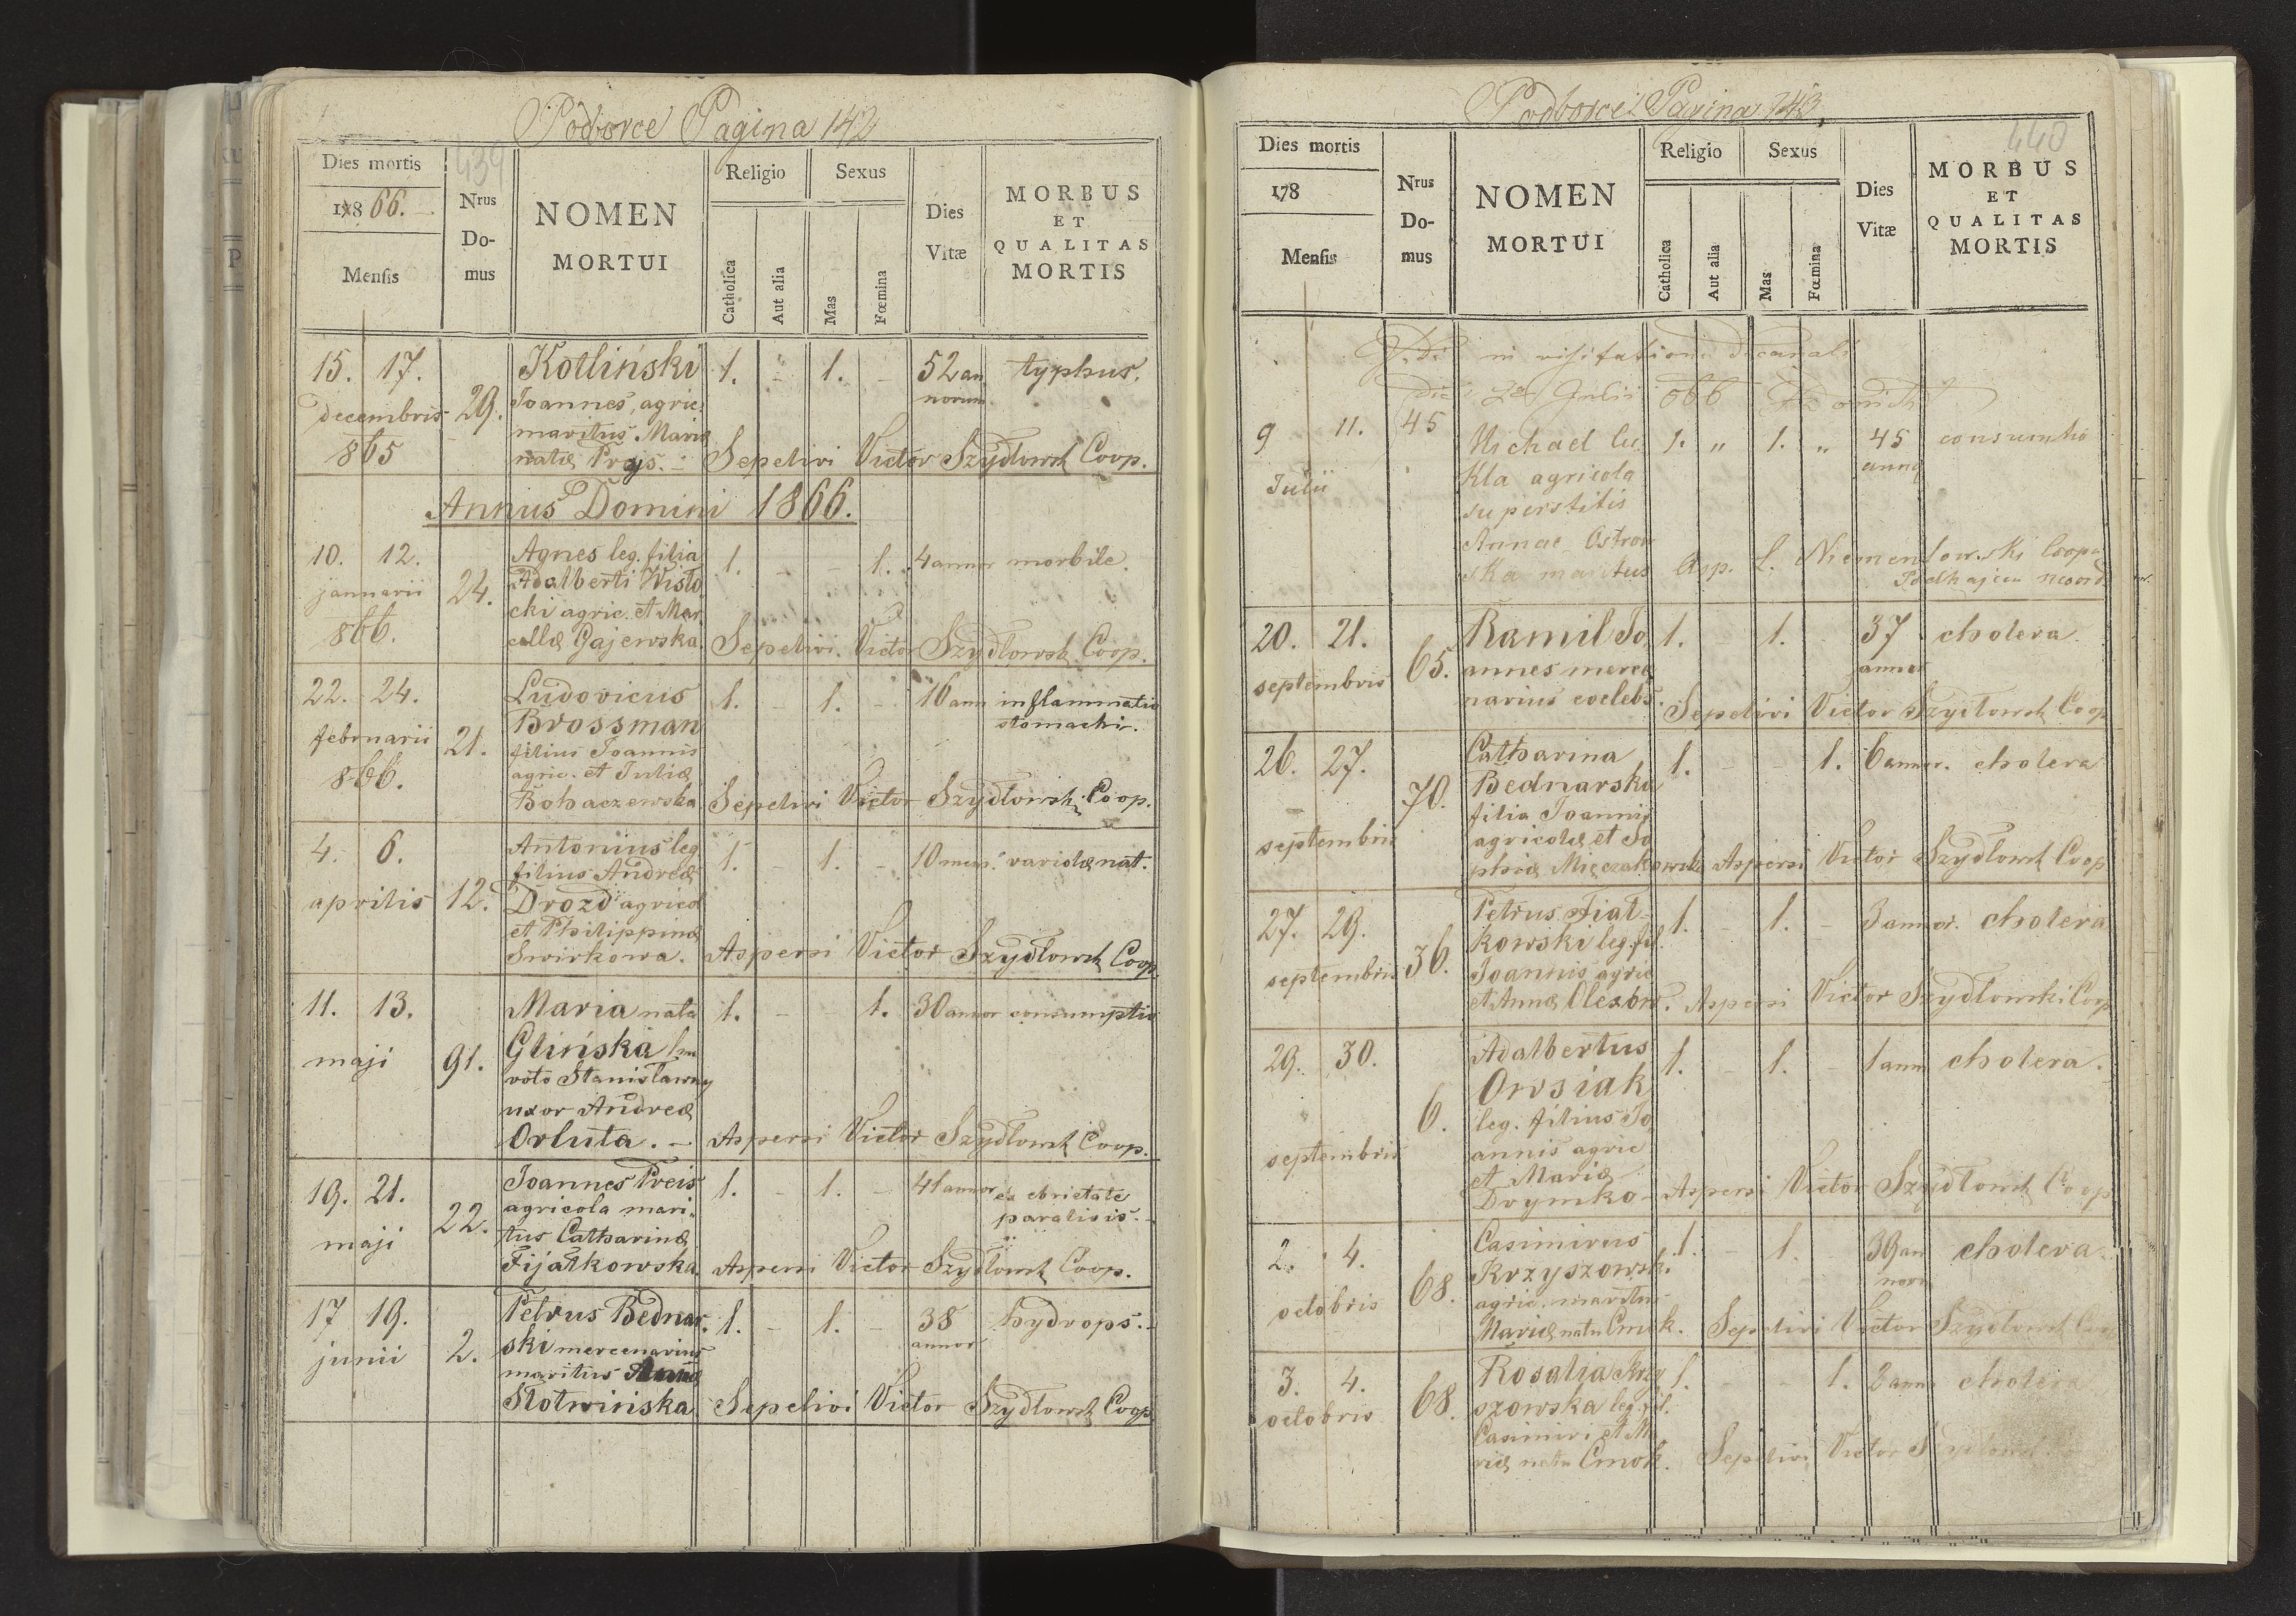 Podborce Pagina 142
439
Dies mortis
1866.
Mensis
Nrus Domus
NOMEN MORTUI
Religio
Catholica
Aut alia
Sexus
Mas
Fœmina
Dies Vitæ
MORBUS ET QUALITAS MORTIS
15. 17.
decembris
865
29.
Kotliński
Joannes, agric.
maritus Mariæ
natæ Prajs. -
1. - 1. -
52 an
norum
typhus.
Sepelivi Victor Szydlowsk Coop.
Annus Domini 1866.
10. 12.
januarii
866.
24.
Agnes leg. filia
Adalberti Wisło
cki agric. et Mar
cellæ Gajewska.
1. - - 1.
4 annor
morbile.
Sepelivi. Victor Szydlowsk. Coop.
22. 24.
februarii
866.
21.
Ludovicus
Brossman
filius Joannis
agric. et Juliæ
Bohaczewska
1. - 1. -
16 ann
inflammatio
stomachi.
Sepelivi Victor Szydlowsk. Coop.
4. 6.
aprilis
12.
Antonius leg
filius Andreæ
Drozd agricol
et Philippinæ
Swirkowa.
1. - 1. -
10 mens.
variolæ nat.
Aspersi Victor Szydlowsk Coop.
11. 13.
maji
91.
Maria nata
Glińska
voto Stanisławny
uxor Andreæ
Orluta. -
1. - 1.
30 annor
consumptio
Aspersi Victor Szydlowsk Coop.
19. 21.
maji
22.
Joannes Preis
agricola mari-
tus Catharinæ
Fijałkowska.
1. - 1. -
41 annor
ex ebrietate
paralisis.
Aspersi Victor Szydlowsk Coop.
17 19.
junii
2.
Petrus Bednar.
ski mercenarius
maritus Annæ
Słotwińska.
1. - 1. -
38
annor
hydrops.
Sepelivi Victor Szydlowsk Coop
Podborce Pagina 143.
440
Dies mortis
178
Mensis
Nrus Domus
NOMEN MORTUI
Religio
Catholica
Aut alia
Sexus
Mas
Fœmina
Dies Vitæ
MORBUS ET QUALITAS MORTIS
in visitatione decanali
die Julii 866
9 11.
Julii
45
Michael Cu
kla agricola
superstitis
Annae Ostrow
ska maritus
1. „ 1. „
45
annor
consumtio
Asp. L. Niementowski Coop.
20. 21.
septembris
65.
Kamil Jo,
annes merce
narius coelebs.
1. 1. -
37
annor
cholera.
Sepelivi Victor Szydlowsk Coop
26. 27.
septembris
70.
Catharina
Bednarska
filia Joannis
agricolæ et So
phiæ Mięczakowska
1. - - 1.
6 annor.
cholera
Aspersi Victor Szydlowsk Coop
27. 29.
septembris
36.
Petrus Fiat-
kowski leg. fil.
Joannis agric
et Annæ Olesów.
1. - 1. -
3 annor.
cholera
Aspersi Victor Szydlowski Coop
29. 30.
septembris
6.
Adalbertus
Owsiak
leg. filius Jo,
annis agric
et Mariæ
Drymko -
1. - 1. -
1 ann
cholera.
Aspersi Victor Szydlowsk Coop
2. 4.
octobris
68.
Casimirus
Krzyszowsk.
agric. maritus
Mariæ natæ Cmok.
1. - 1.
39 an
nor
cholera.
Sepelivi Victor Szydlowsk Coop
3. 4.
octobris
68.
Rosalia Krzy
szowska leg. fil.
Casimiri et Ma
riæ natæ Cmok.
1. - - 1.
2 anno
cholera
Sepelivi Victor Szydlowsk